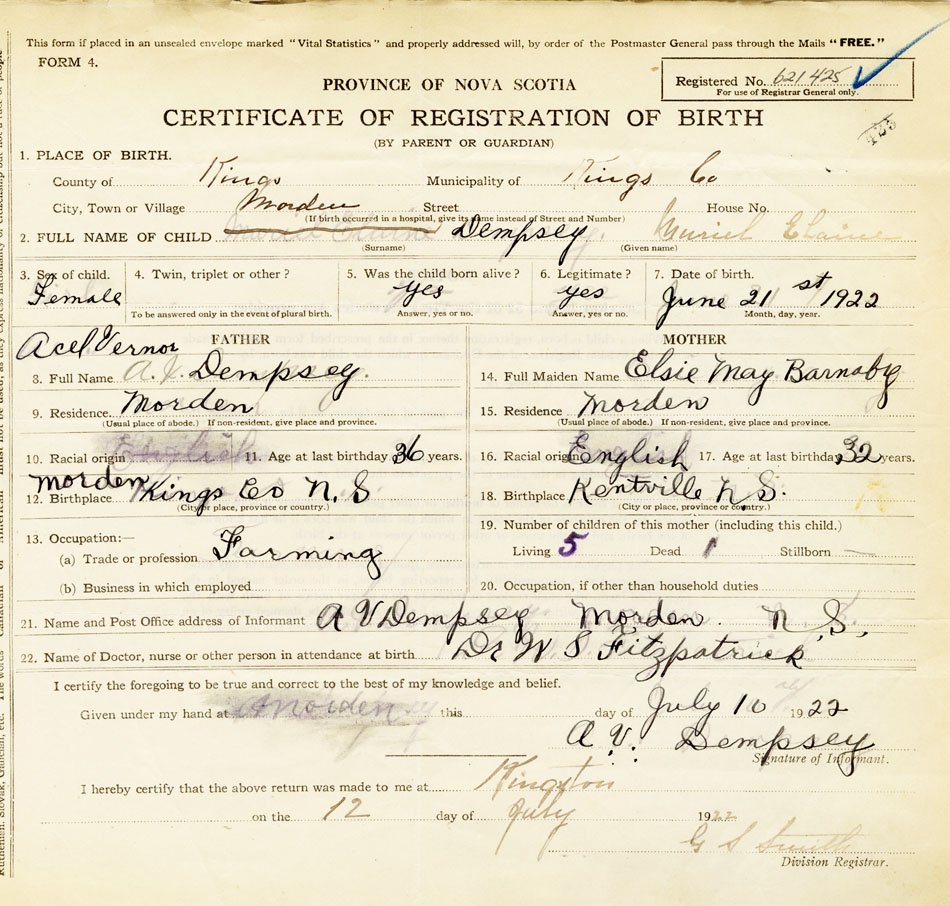 This form if placed in an unsealed envelope marked "Vital Statistics" and properly addressed will, by order of the Postmaster General pass through the Mails "FREE."
FORM 4.
Registered No. 621425
For use of Registrar General only.
PROVINCE OF NOVA SCOTIA
CERTIFICATE OF REGISTRATION OF BIRTH
423
(BY PARENT OR GUARDIAN)
1. PLACE OF BIRTH.
County of Kings Municipality of Kings Co
City, Town or Village Morden Street House No.
(If birth occurred in a hospital, give its name instead of Street and Number)
2. FULL NAME OF CHILD Dempsey. Muriel Elaine
(Surname) (Given name)
3. Sex of child. 4. Twin, triplet or other? 5. Was the child born alive? 6. Legitimate? 7. Date of birth.
Female yes yes June 21st 1922
To be answered only in the event of plural birth. Answer, yes or no. Answer, yes or no. Month, day, year.
Acel Vernor FATHER MOTHER
8. Full Name A. V. Dempsey. 14. Full Maiden Name Elsie May Barnaby
9. Residence. Morden 15. Residence Morden
(Usual place of abode.) If non-resident, give place and province. (Usual place of abode.) If non-resident, give place and province.
10. Racial origin English 11. Age at last birthday 36 years. 16. Racial origin English 17. Age at last birthday 32 years.
12. Birthplace Morden Kings Co N.S 18. Birthplace Kentville N.S.
(City or place, province or country.) (City or place, province or country.)
13. Occupation:— 19. Number of children of this mother (including this child.)
(a) Trade or profession Farming Living 5 Dead 1 Stillborn —
(b) Business in which employed 20. Occupation, if other than household duties
21. Name and Post Office address of Informant A V Dempsey Morden. N.S.
22. Name of Doctor, nurse or other person in attendance at birth Dr W S Fitzpatrick
I certify the foregoing to be true and correct to the best of my knowledge and belief.
Given under my hand at Morden this day of July 10 1922
A. V. Dempsey
Signature of Informant.
I hereby certify that the above return was made to me at Kingston
on the 12 day of July 1922
G S Smith
Division Registrar.